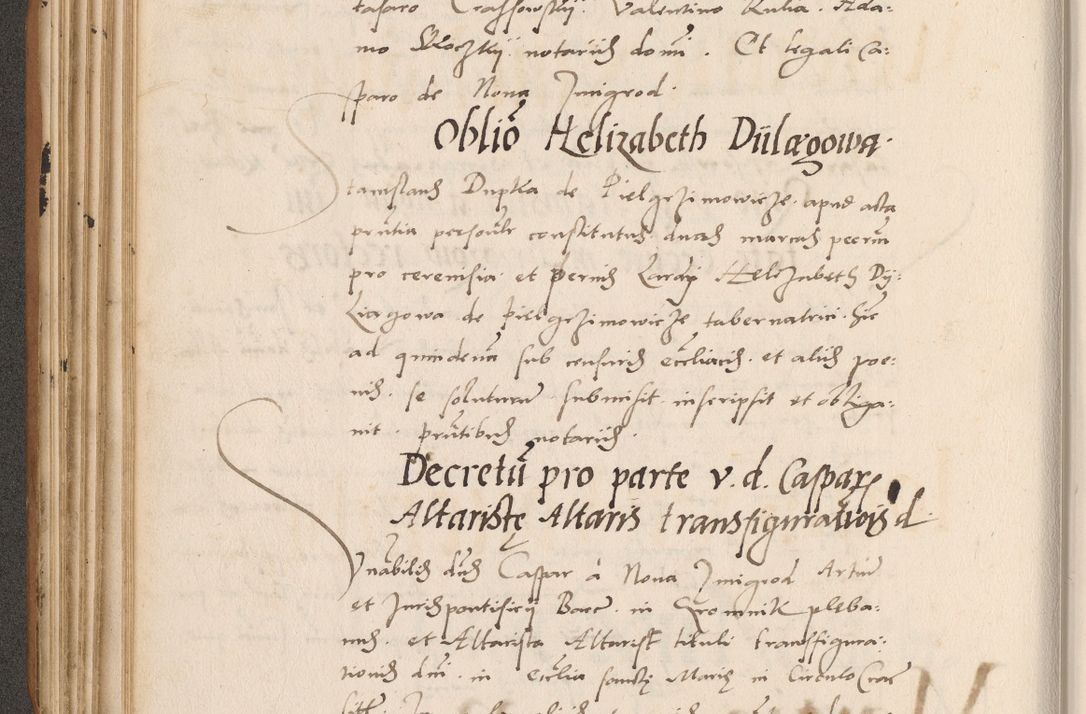 tasaro Crassowskij. Valentino Kulia. Ada:
mo Skoczkij notariis domi. Et legali Ca:
sparo de Nova Jmigrod.
Oblio Helizabeth Diilagowa.
Stanislaus Dupka de Pielgrzimowicze. apud acta
pntia personalr constitutus ducas marcas pecun
pro cerevisia et pernis Lardij Helizabeth Dij:
liagowa de Pielgrzimowicze tabernatrici. hic
ad quindenam sub censuris eccliacis. et aliis poe:
nis. se soluturum submisit. inscripsit et obliga:
nit. pntibus notariis.
Decretu pro parte v. d. Caspari
Altariste Altaris transfigurationis d.
Vnabilis dns Caspar a Nova Jmigrod Artiu
et Jurispontificij Bacc. in Cromnik pleba:
nus. et Altarista Altaris tituli transfigura:
tionis dni. in Ecclia sancte Marie in Circulo Crac